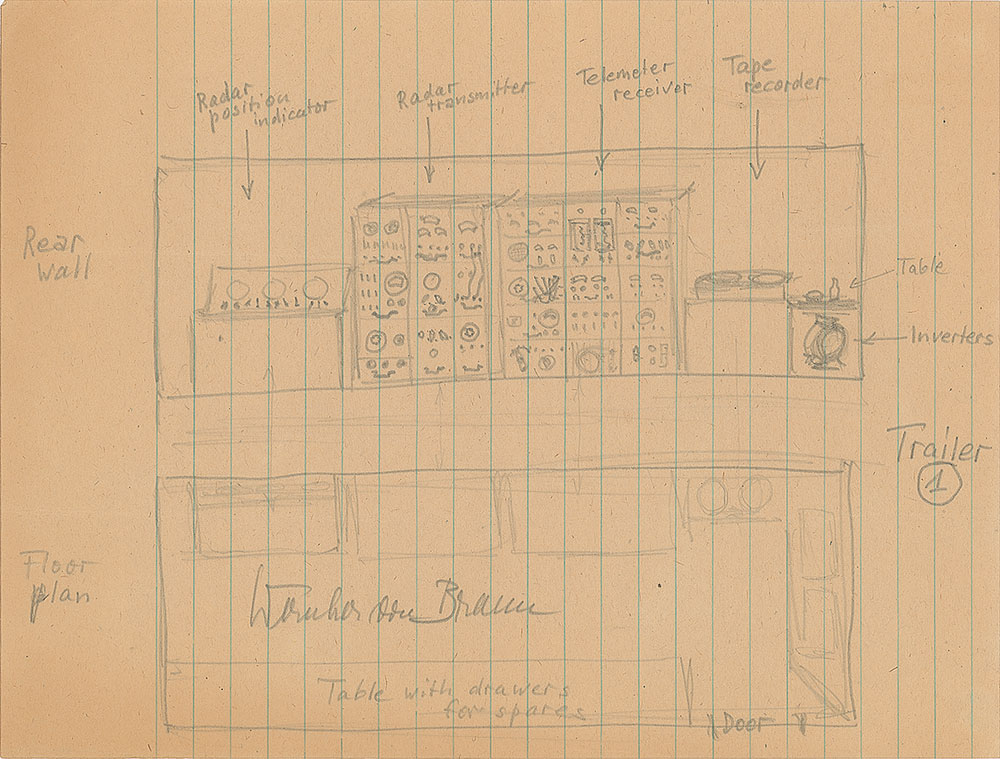 Radar
position
indicator
Radar
transmitter
Telemeter
receiver
Tape
recorder
Rear
wall
Table
Inverters
Trailer
1
Floor
plan
Wernher von Braun
Table with drawers
for spares
Door